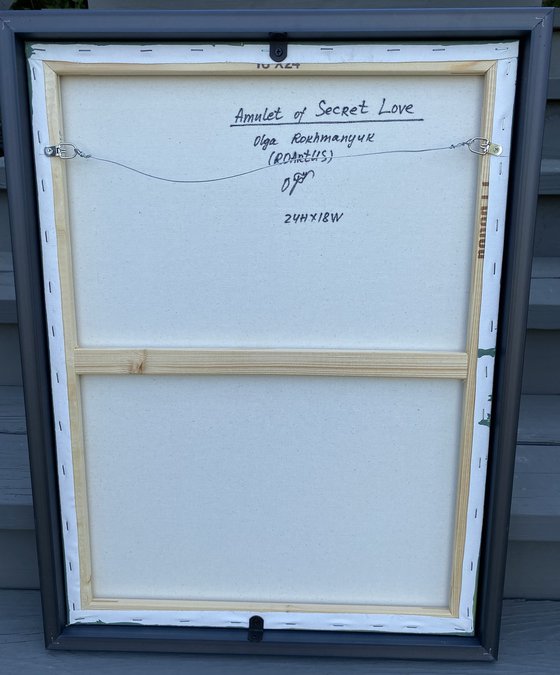 18 X24
Amulet of Secret Love
Olga Rokhmanyuk
(ROArtUS)
24H X 18W